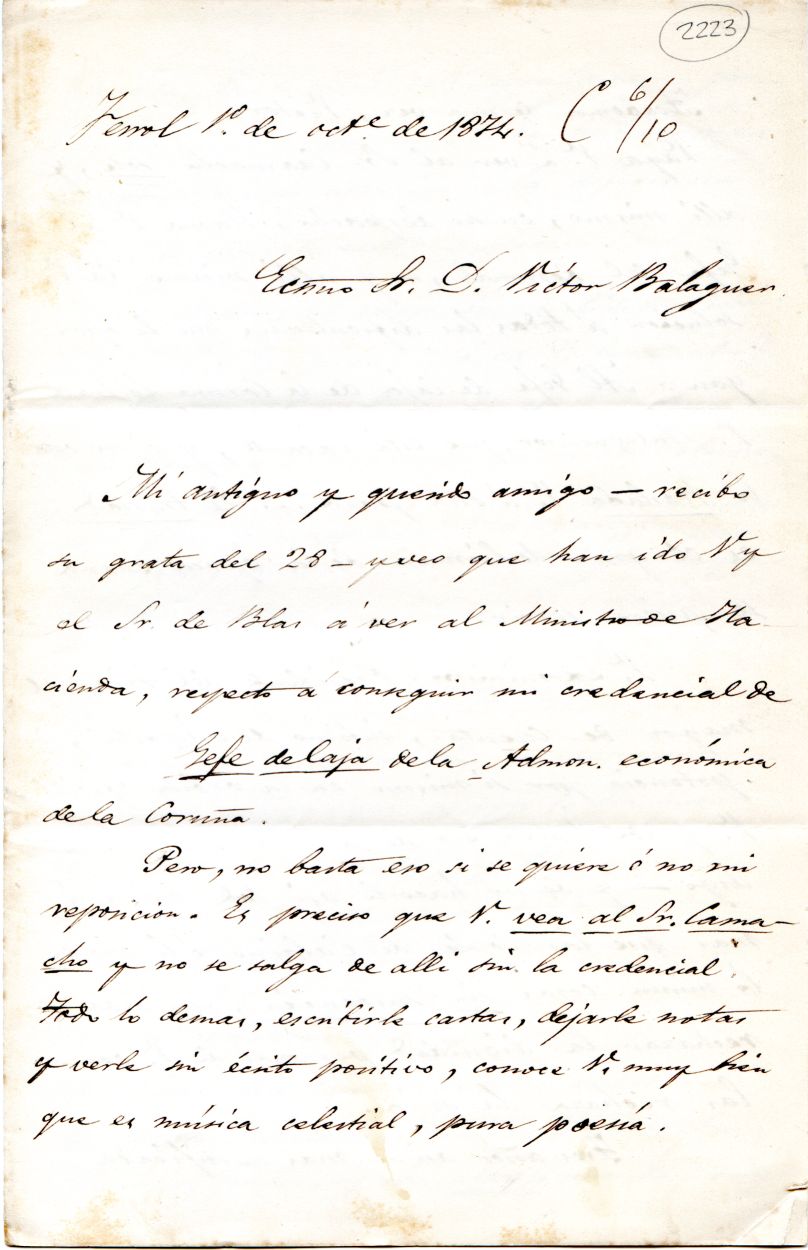 2223
Ferrol 1º. de octe de 1874. C 6/10
Ecmo Sr. D. Víctor Balaguer.
Mi antíguo y querido amigo - recibo
su grata del 28 - y veo que han ído V y
el Sr. de Blas á ver al Ministro de Ha-
cienda, respecto á conseguir mi credencial de
Gefe de Caja de la Admon. económica
de la Coruña.
Pero, no basta eso si se quiere ó no mi
reposicion. Es preciso que V. vea al Sr. Cama-
cho y no se salga de alli sin la credencial.
Todo lo demas, escribirle cartas, dejarle notas
y verle sin écsito positivo, conoce V. muy bien
que es música celestial, pura poesía.